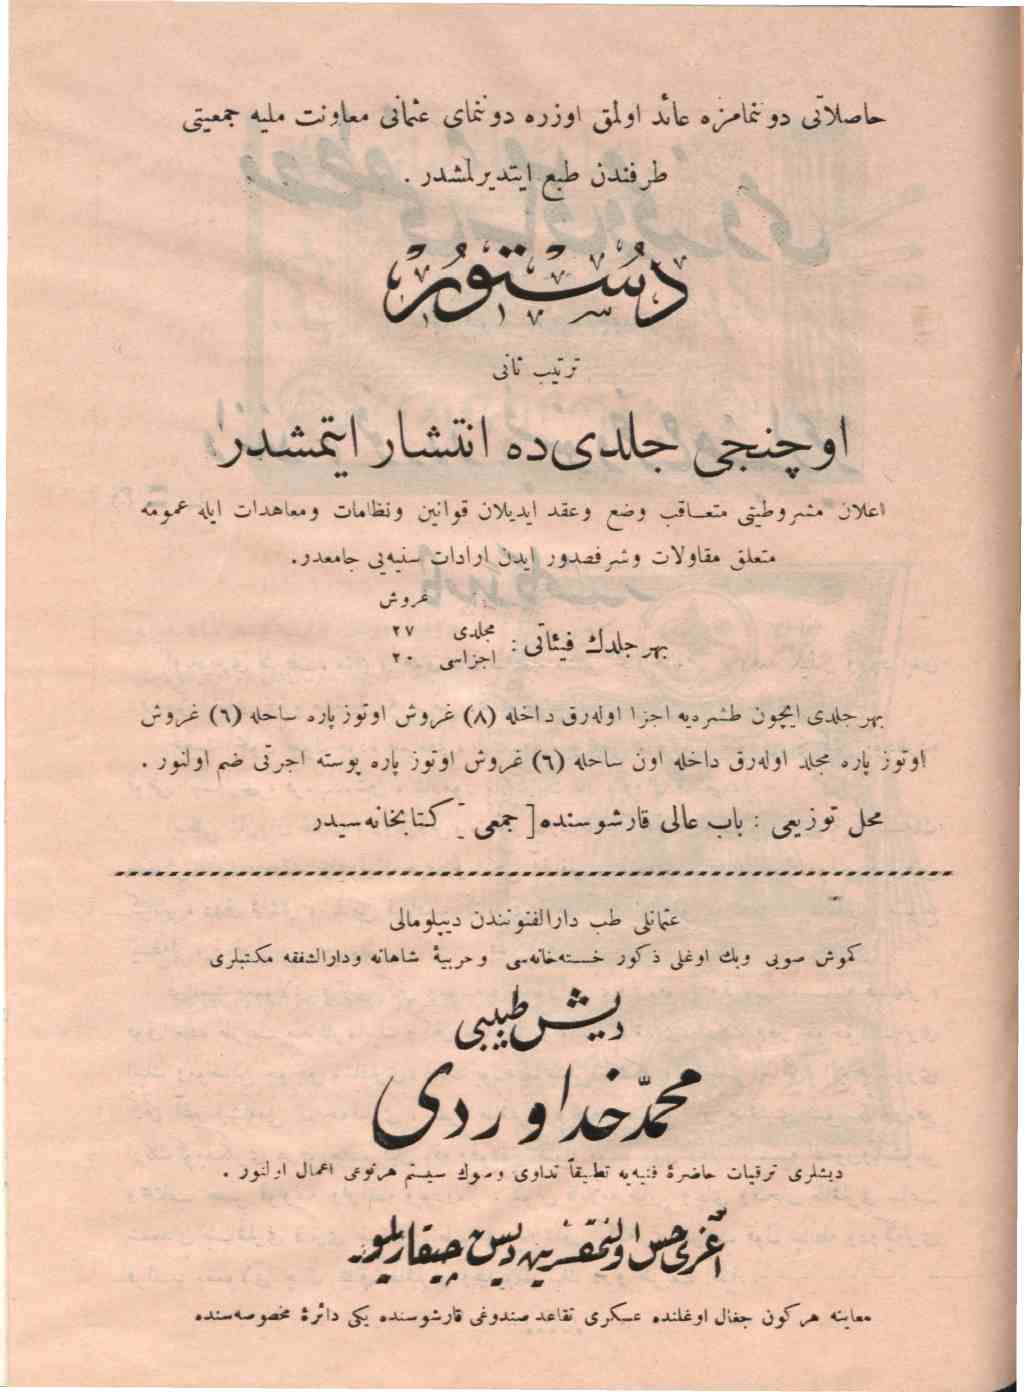 حاصلاتی دوننمامزه عائد اولمق اوزره دوننمای عثمانی معاونت ملیه جمعیتی
طرفندن طبع ایتدیرلمشدر .
دستور
ترتیب ثانی
اوچنجی جلدی ده انتشار ایتمشدر
اعلان مشروطیتی متعاقب وضع وعقد ایدیلان قوانین ونظامات ومعاهدات ایله عمومه
متعلق مقاولات وشرفصدور ایدن ارادات سنیه یی جامعدر.
غروش
بهر جلدك فیئاتی :
مجلدی ٢٧
اجزاسی ٢٠
بهر جلدی ایچون طشره یه اجزا اوله رق داخله (٨) غروش اوتوز پاره ساحله (٦) غروش
اوتوز پاره مجلد اوله رق داخله اون ساحله (٦) غروش اوتوز پاره پوسته اجرتی ضم اولنور .
محل توزیعی : باب عالی قارشوسنده [ جمعی ] كتابخانه سیدر
عثمانلی طب دارالفنوننندن دیپلومالی
كموش صویی وبك اوغلی ذكور خسته خانه سی وحربیۀ شاهانه ودارالشفقه مكتبلری
دیش طبیبی
محمد خداوردی
دیشلری ترقیات حاضرۀ فنیه یه تطبیقاً تداوی وصوك سیستم هر نوعی اعمال اولنور .
آغری حس اولنمقسزین دیش چیقاریلیور
معاینه هر كون جغال اوغلنده عسكری تقاعد صندوغی قارشوسنده یكی دائرۀ مخصوصه سنده